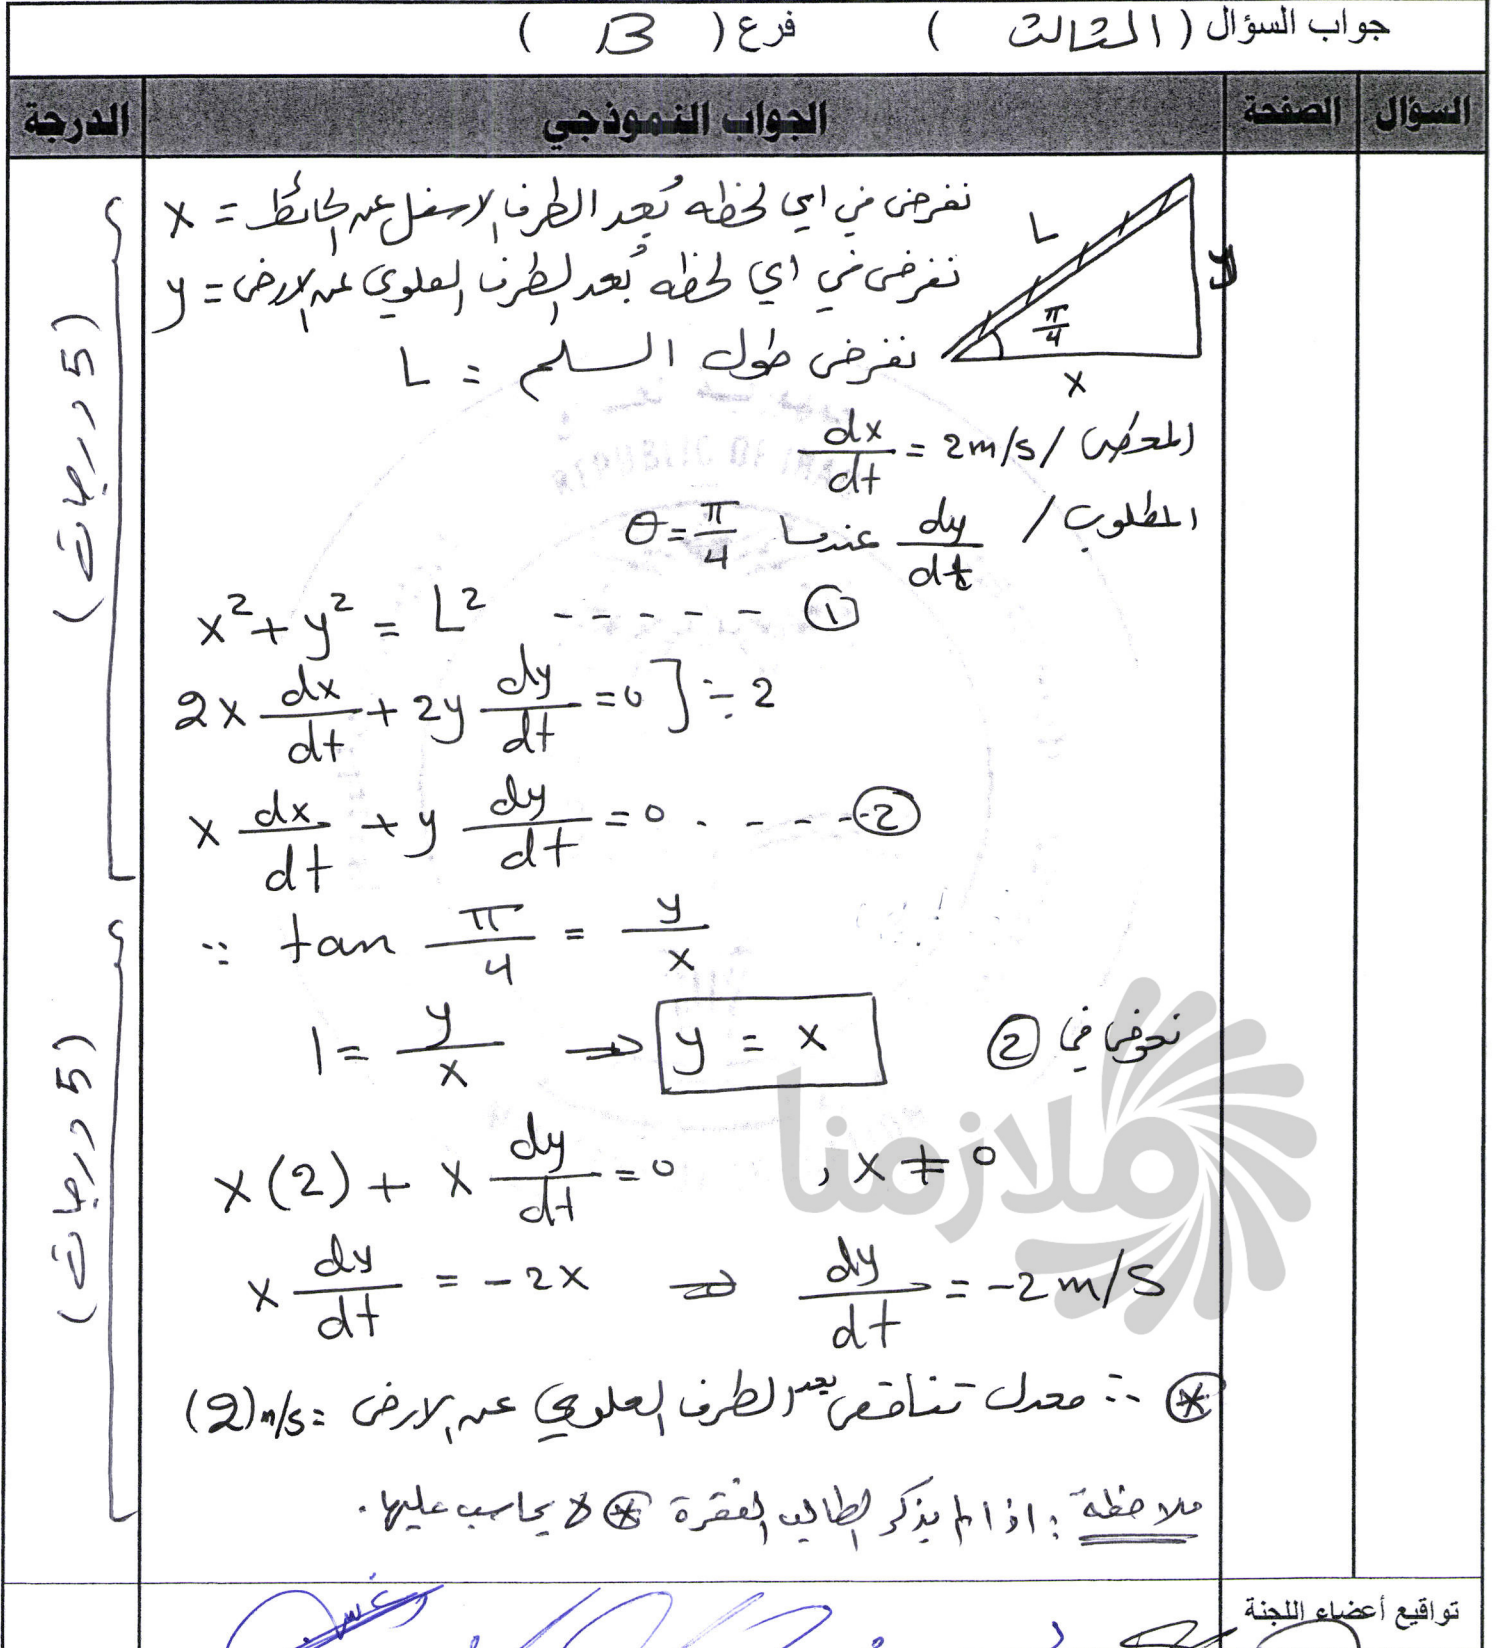 جواب السؤال ( الثالث ) فرع ( B )
السؤال الصفحة الجواب النموذجي الدرجة
نفرض في اي لحظه بُعد الطرف الاسفل عن الحائط = x
نفرض في اي لحظه بُعد الطرف العلوي عن الارض = y
نفرض طول السلم = L
L
y
π/4
x
المعطى / dx/dt = 2m/s
المطلوب / dy/dt عندما θ = π/4
x² + y² = L² - - - - - ①
2x dx/dt + 2y dy/dt = 0 ] ÷ 2
x dx/dt + y dy/dt = 0 - - - - ②
∵ tan π/4 = y/x
1 = y/x ⇒ y = x نعوض في ②
x(2) + x dy/dt = 0 , x ≠ 0
x dy/dt = -2x ⇒ dy/dt = -2 m/s
⊛ ∴ معدل تناقص بعد الطرف العلوي عن الارض = (2) m/s
ملاحظة : اذا لم يذكر الطالب الفقرة ⊛ لا يحاسب عليها .
(5 درجات)
(5 درجات)
ملازمنا
REPUBLIC OF IRAQ
تواقيع أعضاء اللجنة